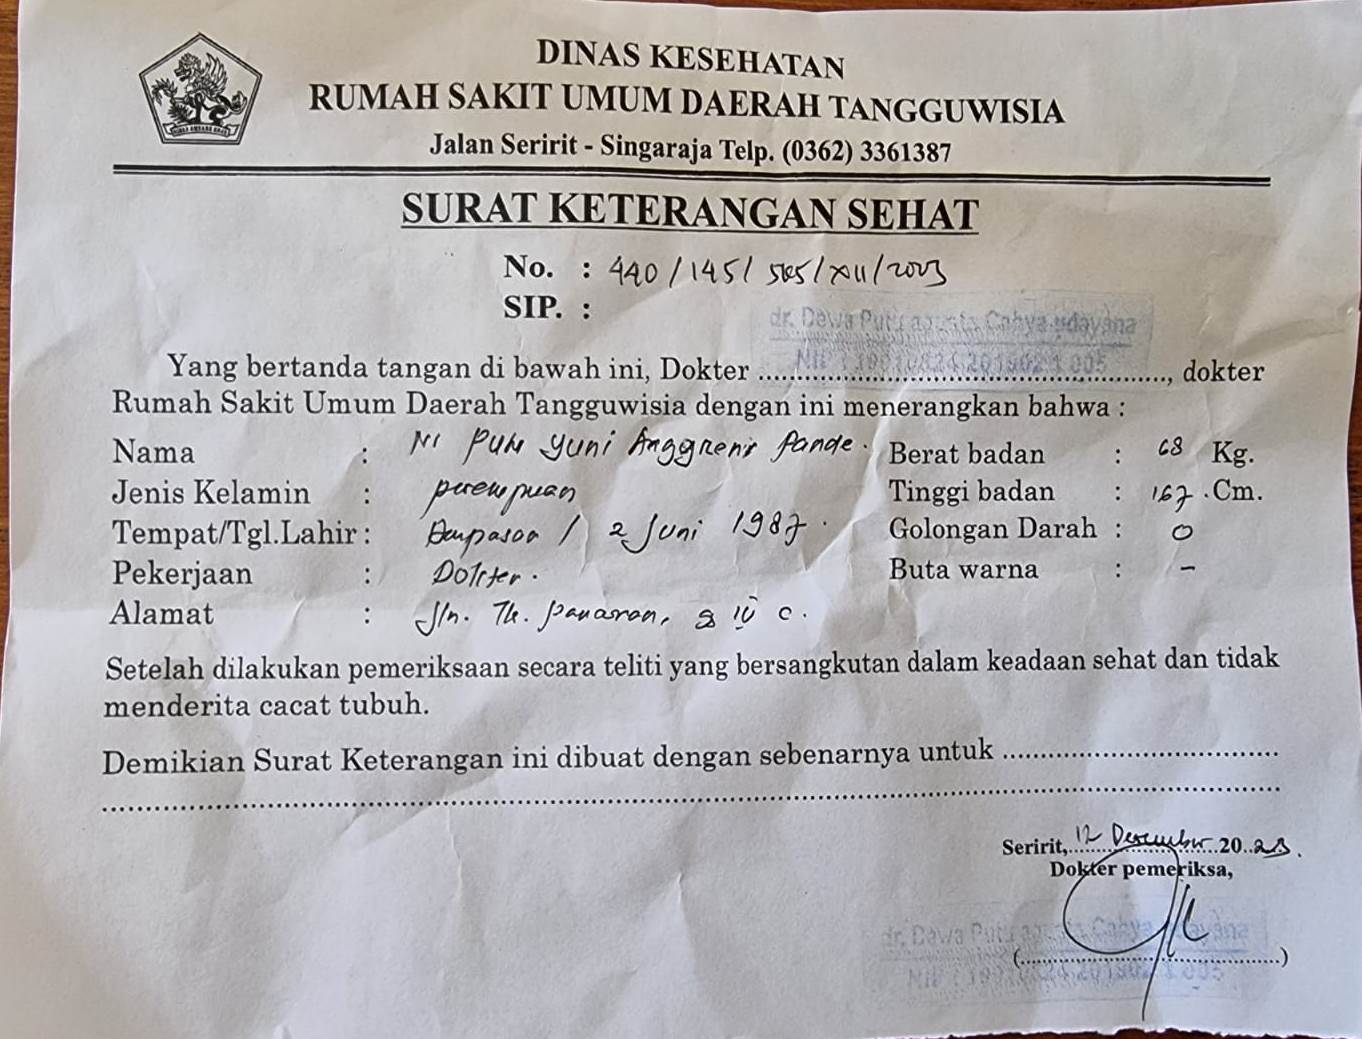 DINAS KESEHATAN
RUMAH SAKIT UMUM DAERAH TANGGUWISIA
Jalan Seririt - Singaraja Telp. (0362) 3361387
SURAT KETERANGAN SEHAT
No. : 440/145/ /XII/2023
SIP. :
dr. Dewa Putu Cahya udayana
Yang bertanda tangan di bawah ini, Dokter ........, dokter
Rumah Sakit Umum Daerah Tangguwisia dengan ini menerangkan bahwa :
Nama : Ni Putu Yuni Anggreni Pande. Berat badan : 68 Kg.
Jenis Kelamin : perempuan Tinggi badan : 167 .Cm.
Tempat/Tgl.Lahir : Denpasar / 2 Juni 1987. Golongan Darah : O
Pekerjaan : Dokter. Buta warna : -
Alamat : Jln. Tk.
Setelah dilakukan pemeriksaan secara teliti yang bersangkutan dalam keadaan sehat dan tidak
menderita cacat tubuh.
Demikian Surat Keterangan ini dibuat dengan sebenarnya untuk ........
Seririt, 12 Desember 2023.
Dokter pemeriksa,
dr. Dewa Putu Cahya udayana
(........)